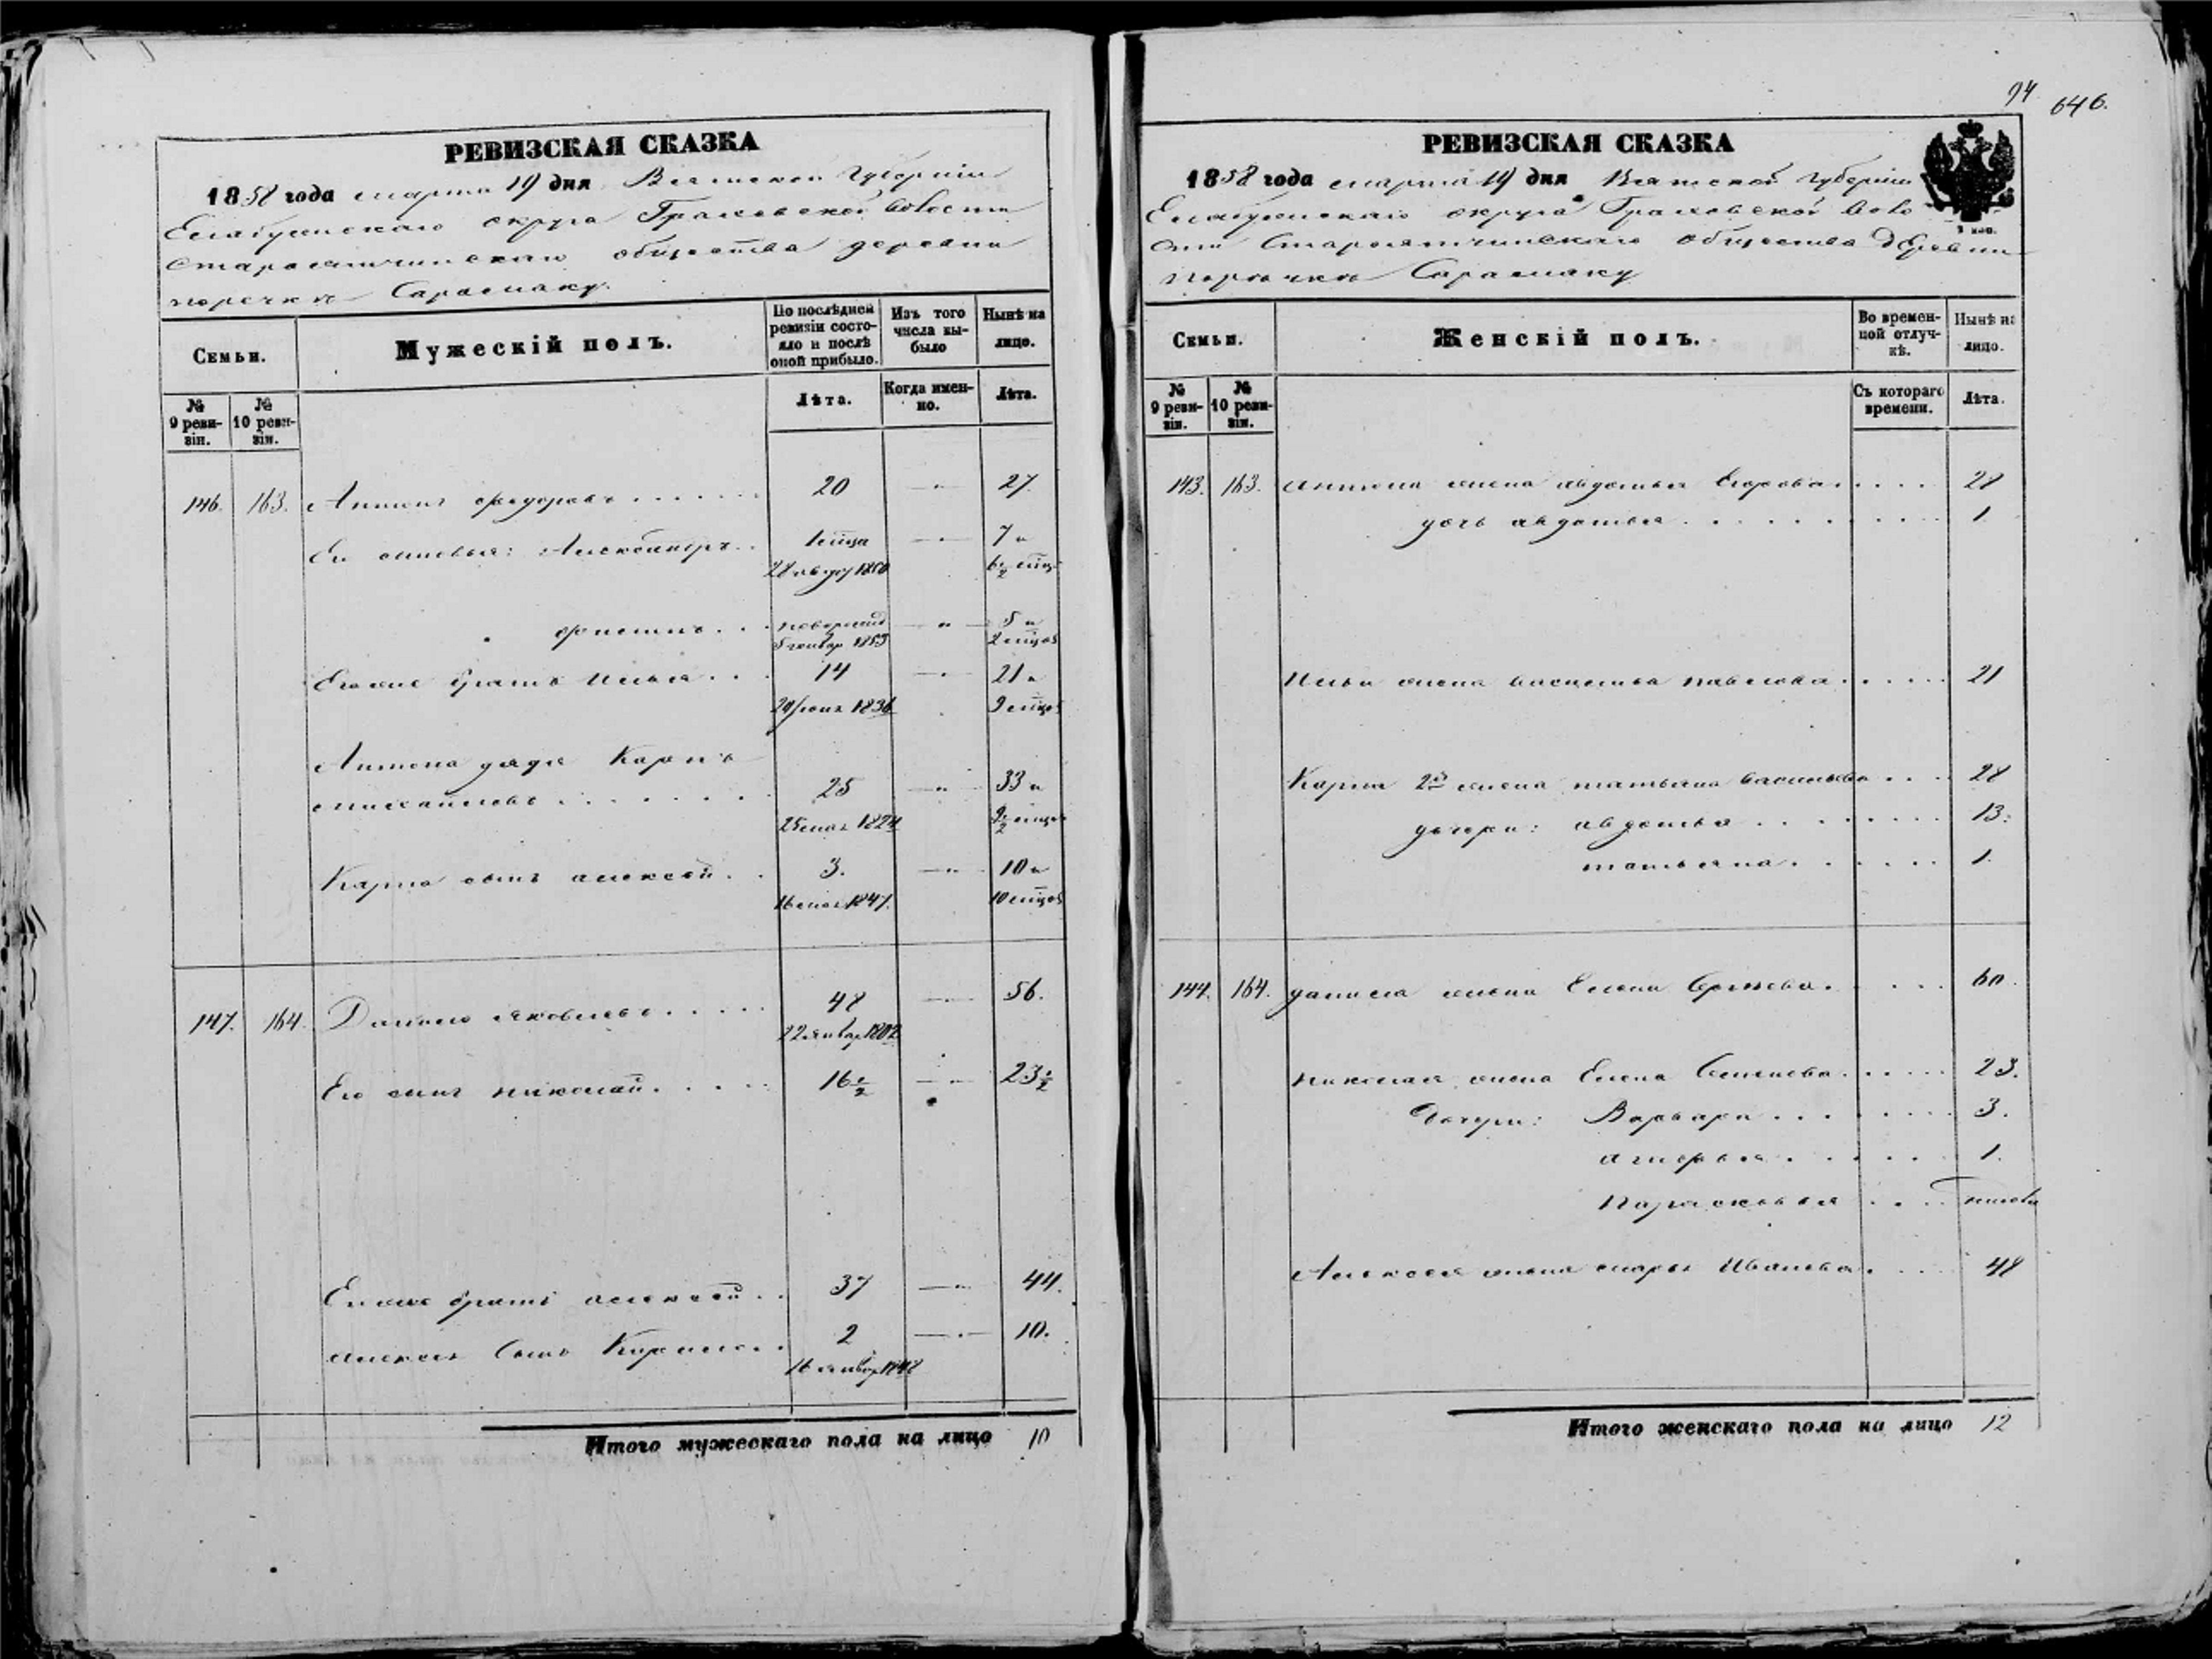 РЕВИЗСКАЯ СКАЗКА
1858 года марта 19 дня Вятской Губерніи
Елабужскаго округа Граховской волости
Староятчинскаго общества деревни
поречки Сарамаку.
Семьи.
Мужескій полъ.
По послѣдней ревизіи состояло и послѣ оной прибыло.
Изъ того числа выбыло
Нынѣ на лицо.
№ 9 ревизіи.
№ 10 ревизіи.
Лѣта.
Когда именно.
Лѣта.
146. 163. Антонъ Федоровъ . . . . . . 20 27.
Ег сыновья: Александръ . . 1 мца 7 и
28 август 1850 6 1/2 мцъ
. . . новорожд 5 и
5 январ 1853 2 мцов
Его же братъ Илья . . . 14 21 и
1836 9 мцов
Антона дядя Карпъ
Михайловъ . . . . . . . 25 33 и
1824
Карпа сынъ алексей . . 3. 10 и
16 мая 1847. 10 мцов
147. 164. Данило яковлевъ . . . . . 48 56.
22 январ 1802
Его сынъ николай. . . . . 16 1/2 23 1/2
Его же братъ алексей . . 37 44.
алексея Сынъ Кирило . . 2 10.
16 январ 1848
Итого мужескаго пола на лицо 10
94
646.
РЕВИЗСКАЯ СКАЗКА
1858 года марта 19 дня Вятской Губерніи
Елабужскаго округа Граховской воло
сти Староятчинскаго общества деревни
поречки Сарамаку
Семьи.
Женскій полъ.
Во временной отлучкѣ.
Нынѣ на лицо.
№ 9 ревизіи.
№ 10 ревизіи.
Съ котораго времени.
Лѣта.
143. 163. антона жена авдотья Егорова. . . . . 28
дочь авдотья . . . . . . . . . 1.
Ильи жена василиса павлова . . . . . 21
Карпа 2я жена татьяна васильева . . . 28
дочери: авдотья . . . . . . . . 13.
татьяна . . . . . . 1.
144. 164. данила жена Елена . . . . . 60.
николая жена Елена Семенова . . . . . 23.
Дочери: Варвара . . . . . . . 3.
. . . . . . 1.
Парасковья . . . .
Алексея жена марья Иванова . . . . 48
Итого женскаго пола на лицо 12